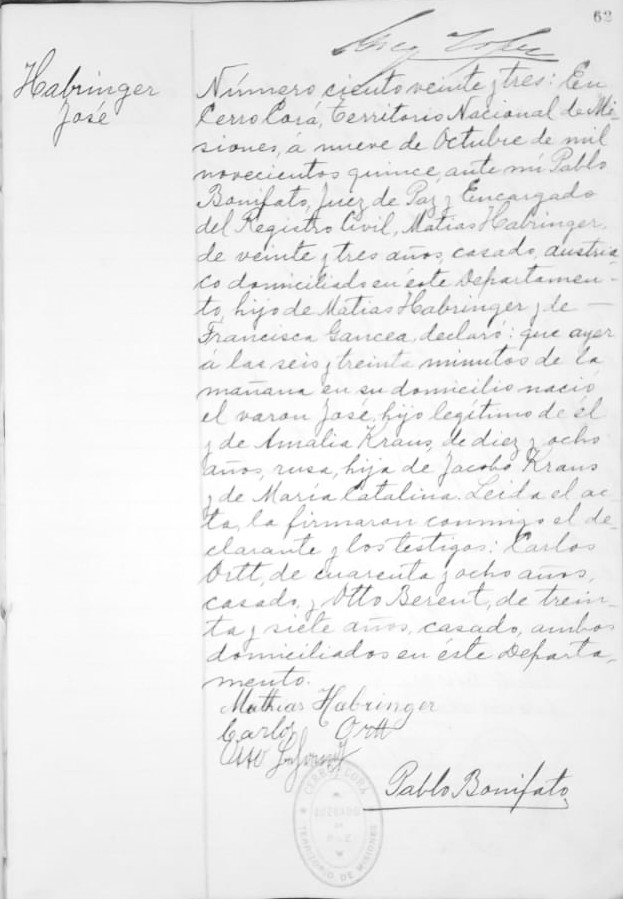 62
Habringer
José
Número ciento veinte y tres: En
Cerro Corá, Territorio Nacional de Mi-
siones, á nueve de Octubre de mil
novecientos quince, ante mí Pablo
Bonifato, Juez de Paz y Encargado
del Registro Civil, Matias Habringer,
de veinte y tres años, casado, austria-
co domiciliado en éste Departamen-
to, hijo de Matias Habringer y de —
Francisca Gancea, declaró: que ayer
á las seis y treinta minutos de la
mañana en su domicilio nació
el varon José, hijo legítimo de él
y de Amalia Kraus, de diez y ocho
años, rusa, hija de Jacobo Kraus
y de María Catalina. Leida el ac-
ta, la firmaron conmigo el de-
clarante y los testigos: Carlos
Ortt, de cuarenta y ocho años,
casado, y Otto Berent, de trein-
ta y siete años, casado, ambos
domiciliados en éste Departa-
mento.
Mathias Habringer
Carlos Ortt
Otto
Pablo Bonifato
CERRO CORA
JUZGADO
DE
PAZ
TERRITORIO DE MISIONES